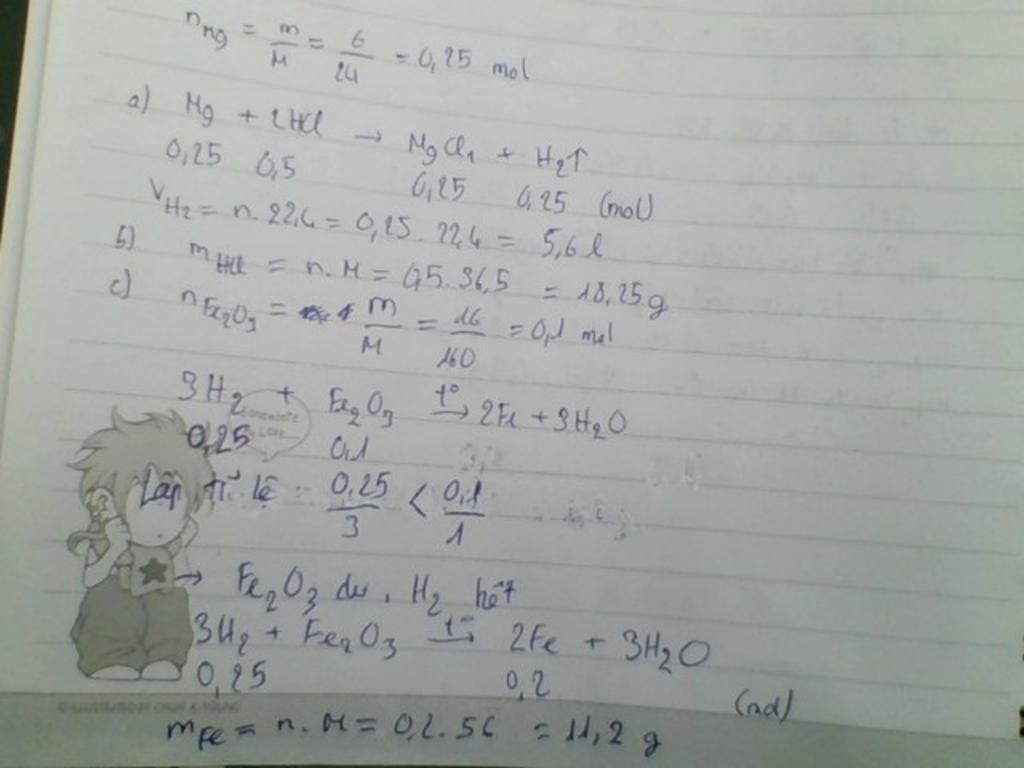 nMg = m/M = 6/24 = 0,25 mol
a) Mg + 2HCl → MgCl2 + H2↑
0,25 0,5 0,25 0,25 (mol)
VH2 = n. 22,4 = 0,25. 22,4 = 5,6 l
b) mHCl = n. M = 0,5. 36,5 = 18,25g
c) nFe2O3 = m/M = 16/160 = 0,1 mol
3H2 + Fe2O3 t°→ 2Fe + 3H2O
0,25 0,1
Lập tỉ lệ: 0,25/3 < 0,1/1
→ Fe2O3 dư, H2 hết
3H2 + Fe2O3 t°→ 2Fe + 3H2O
0,25 0,2 (mol)
mFe = n. M = 0,2. 56 = 11,2 g